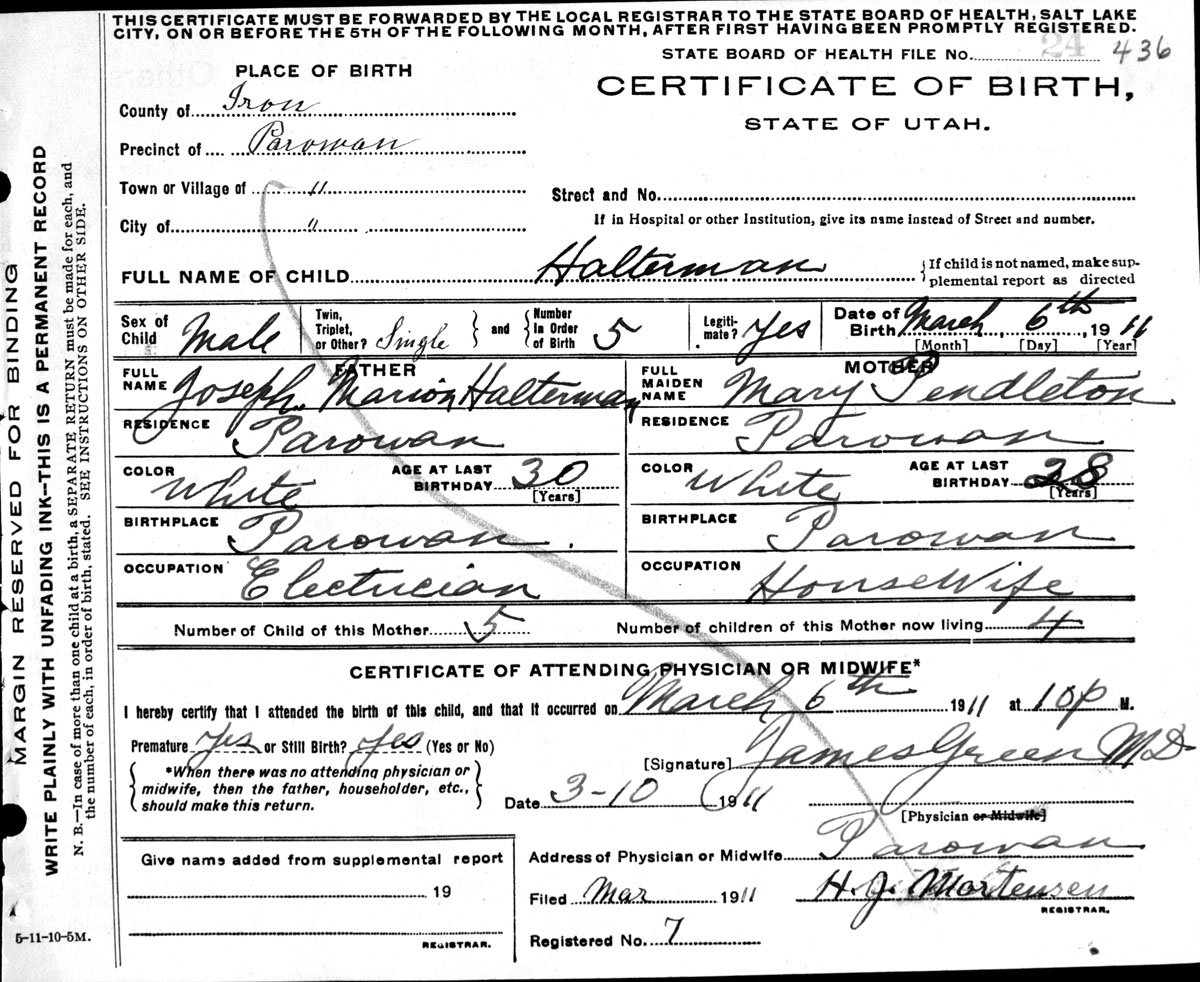 THIS CERTIFICATE MUST BE FORWARDED BY THE LOCAL REGISTRAR TO THE STATE BOARD OF HEALTH, SALT LAKE
CITY, ON OR BEFORE THE 5TH OF THE FOLLOWING MONTH, AFTER FIRST HAVING BEEN PROMPTLY REGISTERED.
STATE BOARD OF HEALTH FILE No. 24 436
PLACE OF BIRTH
CERTIFICATE OF BIRTH,
STATE OF UTAH.
County of Iron
Precinct of Parowan
Town or Village of "
Street and No.
City of "
If in Hospital or other Institution, give its name instead of Street and number.
FULL NAME OF CHILD Halterman {If child is not named, make sup-
plemental report as directed
Sex of Child Male Twin, Triplet, or Other? Single } and { Number In Order of Birth 5 Legiti-mate? Yes Date of Birth March 6th, 1911
[Month] [Day] [Year]
FATHER MOTHER
FULL NAME Joseph Marion Halterman FULL MAIDEN NAME Mary Pendleton
RESIDENCE Parowan RESIDENCE Parowan
COLOR White AGE AT LAST BIRTHDAY 30 [Years] COLOR White AGE AT LAST BIRTHDAY 28 [Years]
BIRTHPLACE Parowan. BIRTHPLACE Parowan
OCCUPATION Electrician OCCUPATION HouseWife
Number of Child of this Mother 5 Number of children of this Mother now living 4
CERTIFICATE OF ATTENDING PHYSICIAN OR MIDWIFE*
I hereby certify that I attended the birth of this child, and that it occurred on March 6th 1911 at 10p M.
Premature Yes or Still Birth? Yes (Yes or No)
[Signature] James Green M.D.
{ *When there was no attending physician or
midwife, then the father, householder, etc.,
should make this return. }
Date 3-10 1911
[Physician or Midwife]
Give name added from supplemental report
Address of Physician or Midwife Parowan
19
Filed Mar 1911 H. J. Mortensen
REGISTRAR.
REGISTRAR.
Registered No. 7
5-11-10-5M.
MARGIN RESERVED FOR BINDING
WRITE PLAINLY WITH UNFADING INK—THIS IS A PERMANENT RECORD
N. B.—In case of more than one child at a birth, a SEPARATE RETURN must be made for each, and
the number of each, in order of birth, stated. SEE INSTRUCTIONS ON OTHER SIDE.